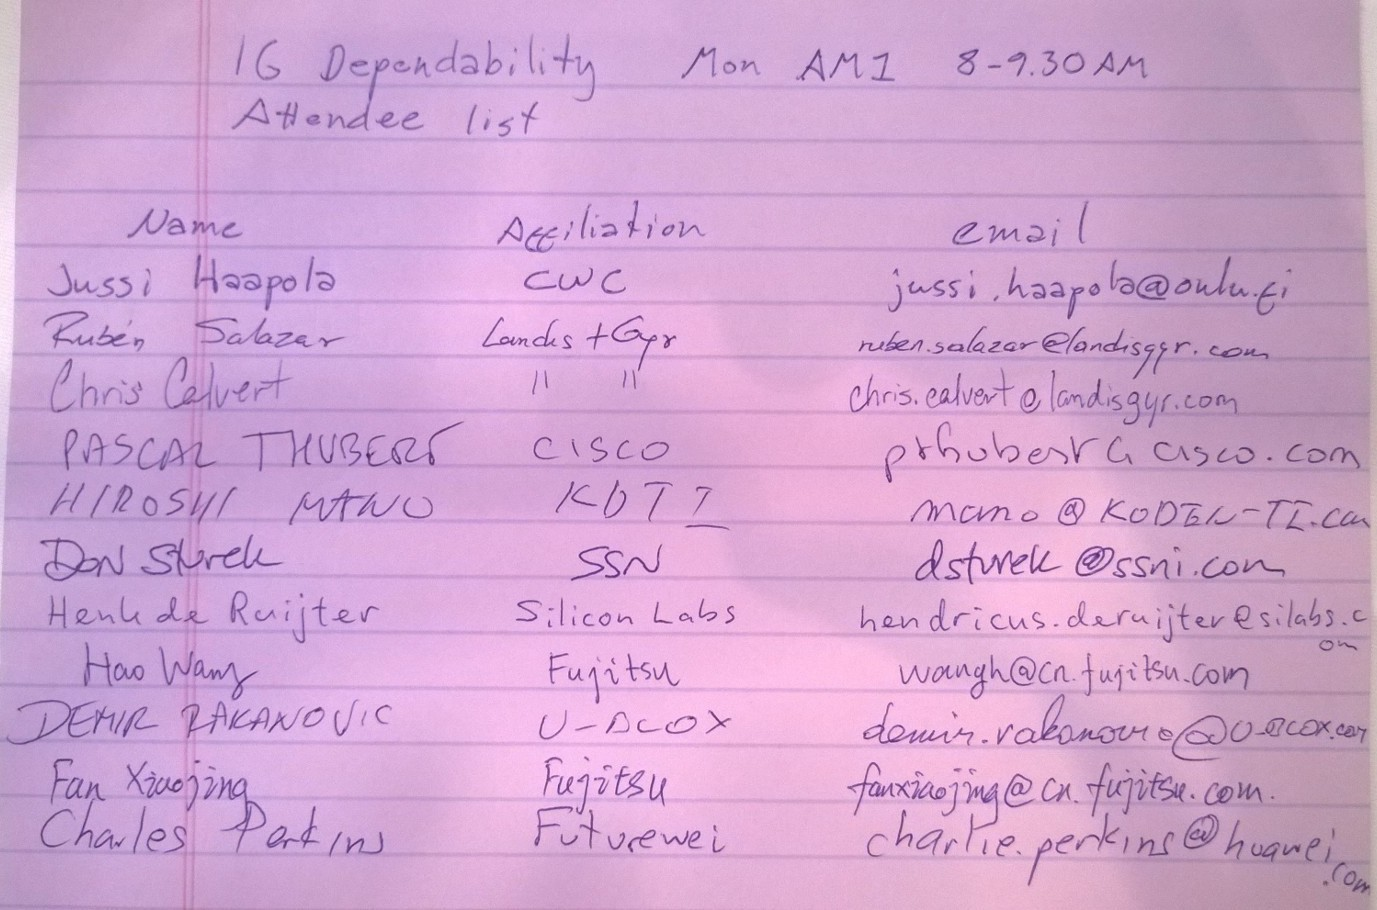 IG Dependability Mon AM1 8-9.30 AM
Attendee list
Name Affiliation email
Jussi Haapola CWC jussi.haapola@oulu.fi
Rubén Salazar Landis + Gyr ruben.salazar@landisgyr.com
Chris Calvert " " chris.calvert@landisgyr.com
PASCAL THUBERT CISCO pthubert@cisco.com
HIROSHI MANO KDTI mano@KODEN-TI.com
Don Sturek SSN dsturek@ssni.com
Henk de Ruijter Silicon Labs hendricus.deruijter@silabs.c
om
Hao Wang Fujitsu wangh@cn.fujitsu.com
DEMIR RAKANOVIC U-BLOX
Fan Xiaojing Fujitsu fanxiaojing@cn.fujitsu.com.
Charles Perkins Futurewei charlie.perkins@huawei
.com